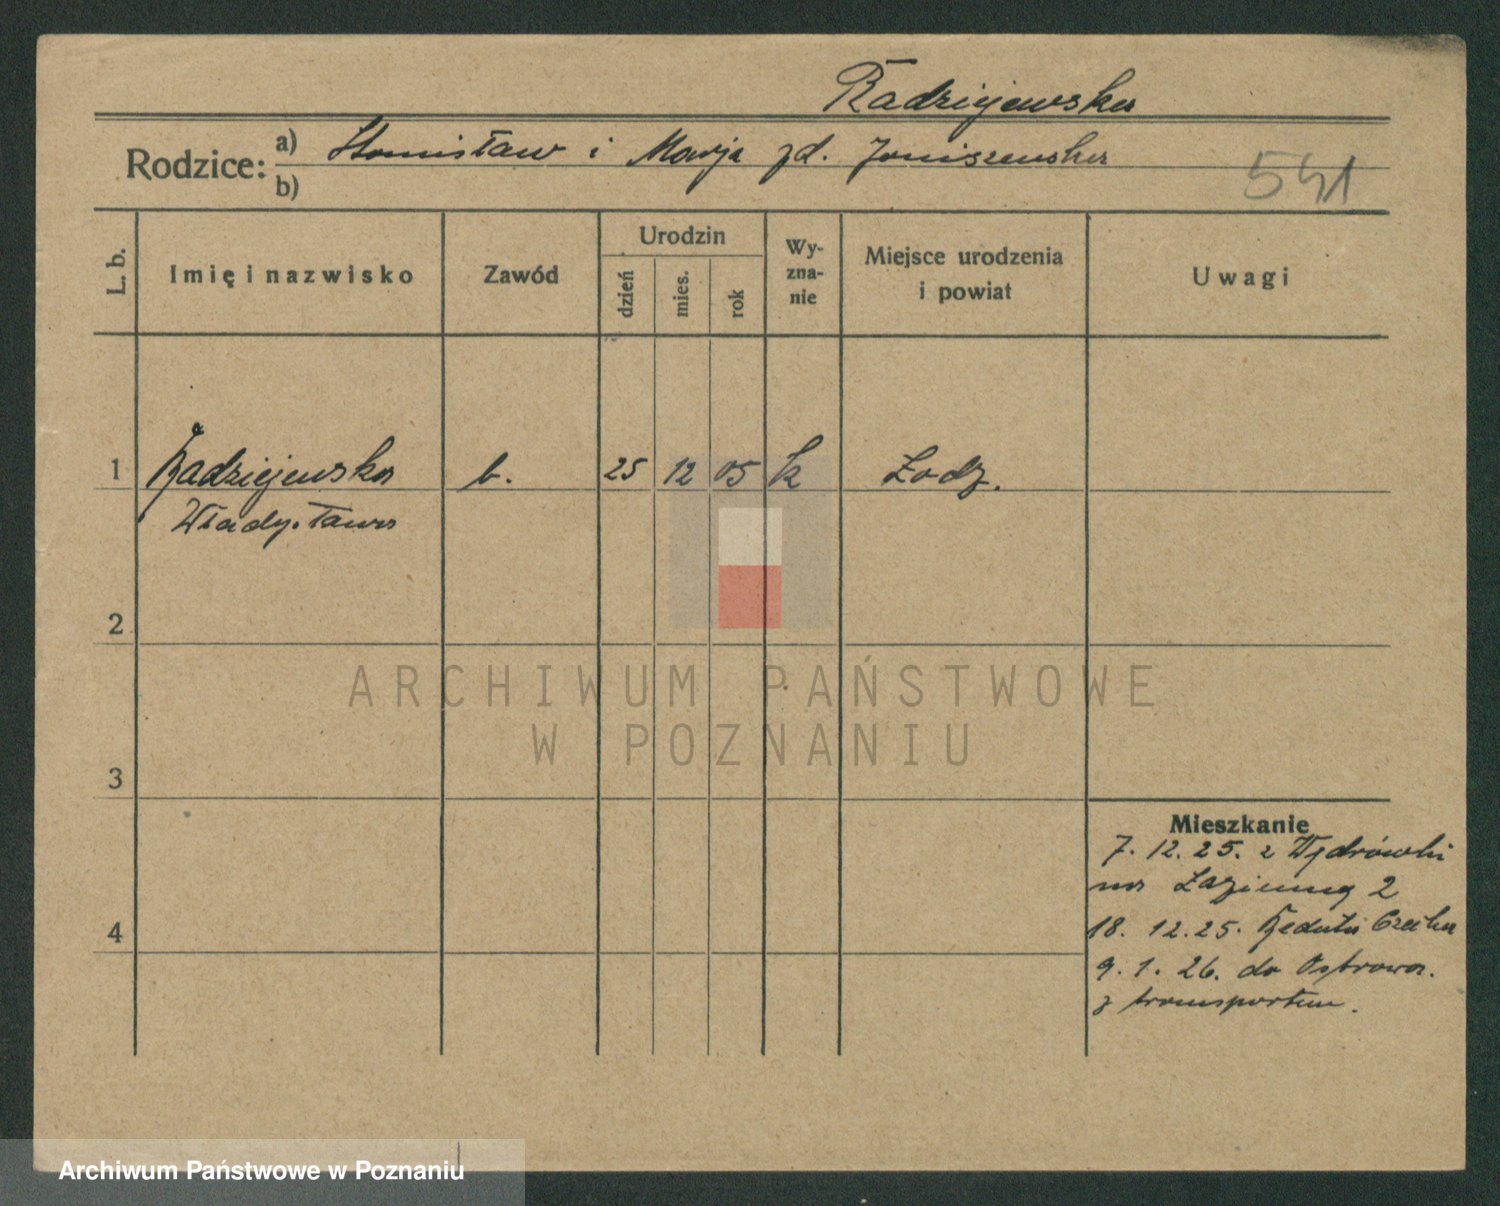 Radziejewska
Rodzice: a) Stanisław i Marja zd. Janiszewska
b)
541
L. b.
Imię i nazwisko
Zawód
Urodzin
dzień
mies.
rok
Wy-
zna-
nie
Miejsce urodzenia
i powiat
Uwagi
1 Radziejewska b. 25 12 05 k Łodz.
Władysława
2
3
4
Mieszkanie
7. 12. 25. z Wędrówki
na Łazienną 2
18. 12. 25. Reduta
9. 1. 26. do Ostrowa.
z transportem.
ARCHIWUM PAŃSTWOWE
W POZNANIU
Archiwum Państwowe w Poznaniu